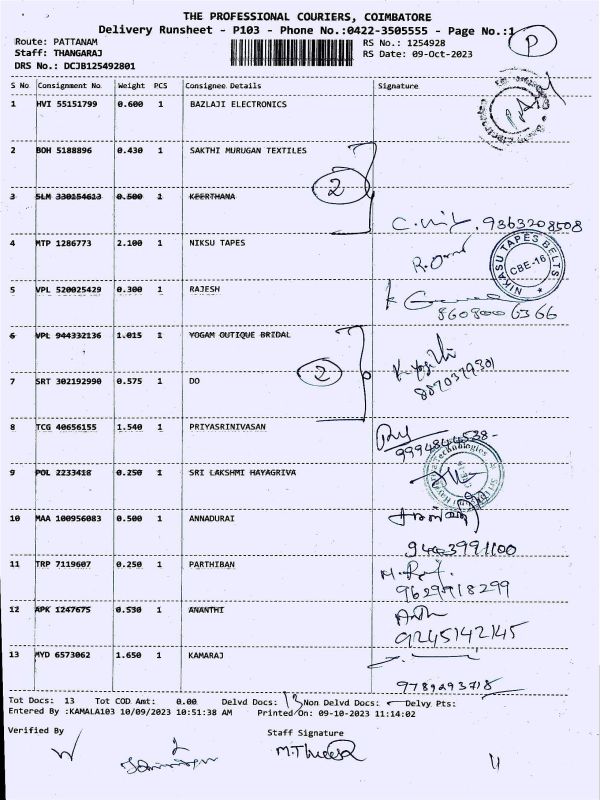 THE PROFESSIONAL COURIERS, COIMBATORE
Delivery Runsheet - P103 - Phone No.:0422-3505555 - Page No.:1
P
Route: PATTANAM
RS No.: 1254928
Staff: THANGARAJ
RS Date: 09-Oct-2023
DRS No.: DCJB125492801
S No Consignment No Weight PCS Consignee Details Signature
1 HVI 55151799 0.600 1 BAZLAJI ELECTRONICS
2 BOH 5188896 0.430 1 SAKTHI MURUGAN TEXTILES
2
3 SLM 330154613 0.500 1 KEERTHANA
9363208508
4 MTP 1286773 2.100 1 NIKSU TAPES
NIKASU TAPES BELTS
CBE-16
5 VPL 520025429 0.300 1 RAJESH
6 VPL 944332136 1.015 1 YOGAM OUTIQUE BRIDAL
2
7 SRT 302192990 0.575 1 DO
8 TCG 40656155 1.540 1 PRIYASRINIVASAN
9 POL 2233418 0.250 1 SRI LAKSHMI HAYAGRIVA
10 MAA 100956083 0.500 1 ANNADURAI
11 TRP 7119607 0.250 1 PARTHIBAN
12 APK 1247675 0.530 1 ANANTHI
9245142145
13 MYD 6573062 1.650 1 KAMARAJ
Tot Docs: 13 Tot COD Amt: 0.00 Delvd Docs: 13 Non Delvd Docs: Delvy Pts:
Entered By :KAMALA103 10/09/2023 10:51:38 AM Printed On: 09-10-2023 11:14:02
Verified By
Staff Signature